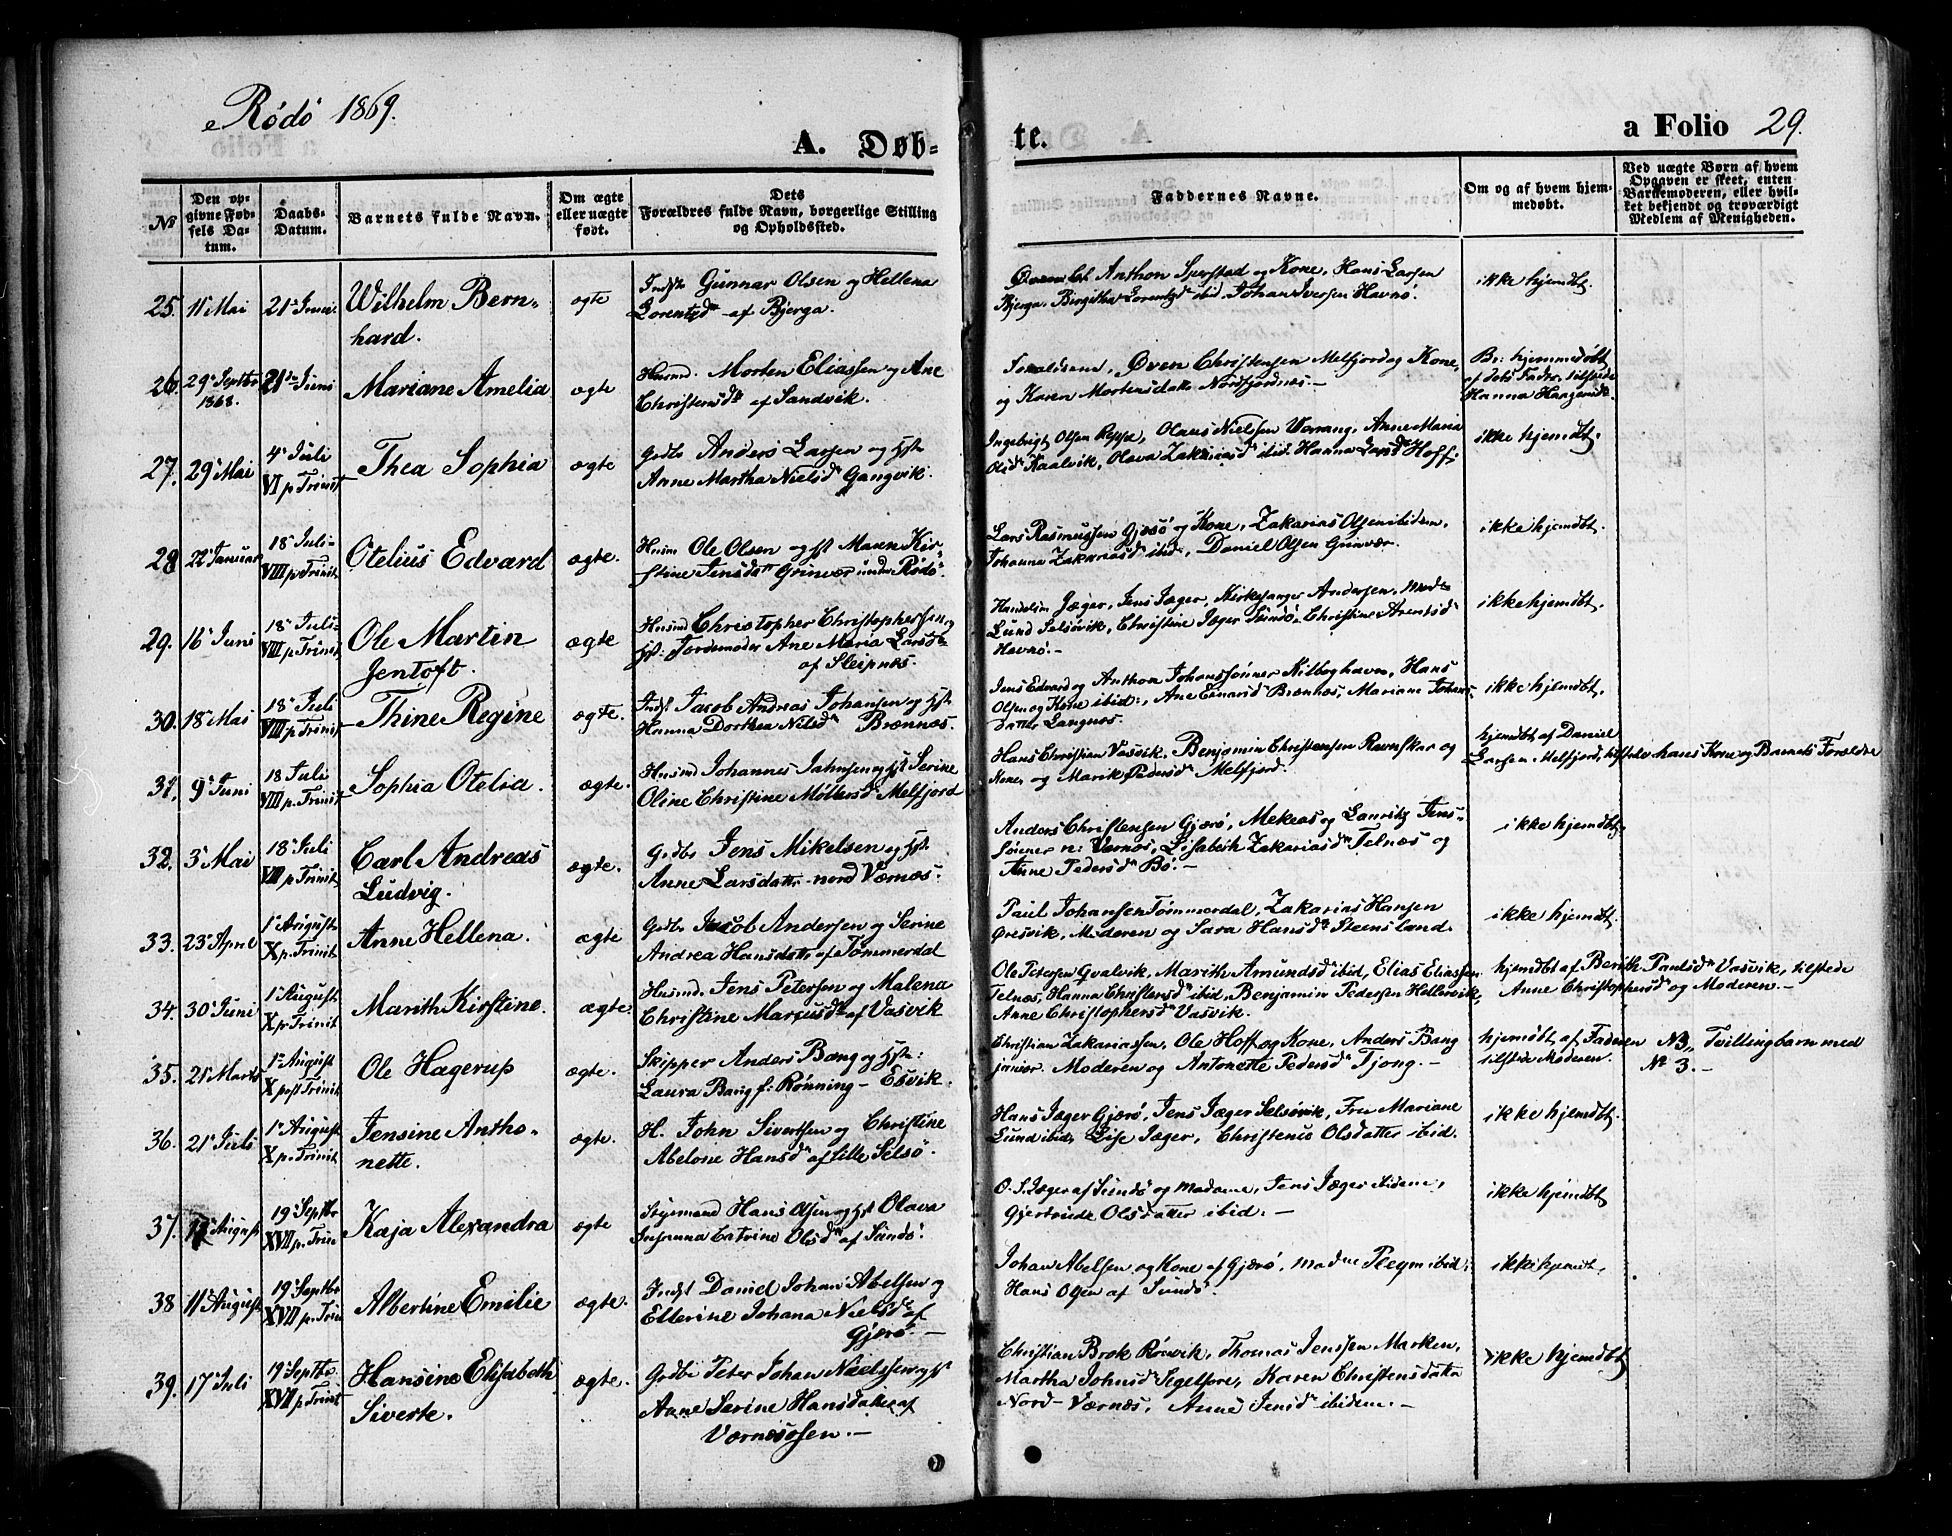 Rödö 1869.
A. Døb-
te.
a Folio 29.
№
Den op-
givne Fød-
sels Da-
tum.
Daabs-
Datum.
Barnets fulde Navn.
Om ægte
eller uægte
født.
Dets
Forældres fulde Navn, borgerlige Stilling
og Opholdssted.
Faddernes Navne.
Om og af hvem hjem-
medøbt.
Ved uægte Børn af hvem
Opgaven er skeet, enten
Barnemoderen, eller hvil-
ket bekjendt og troværdigt
Medlem af Menigheden.
25. 11 Mai 21 Juni. Wilhelm Bern-
hard.
ægte
Indst Gunnar Olsen og Hellena
Lorentzdtr af Bjerga.
Anthon Sperstad og Kone, Hans Larsen
Bjerga, Birgitha Lorentzd ibid. Johan Iversen Havnö.
ikke hjemdbt.
26. 29 Septbr
1868.
21de Juni
Mariane Amelia
ægte
Husmd. Morten Eliassen og Ane
Christensdtr af Sandvik.
Forældrene, Öven Christensen Melfjord og Kone,
og Karen Mortensdatter Nordfjordnæs.-
Br: hjemmedöbt
af dets Fader, tilstede
Hanna Haagensdtr
27. 29 Mai
4 Juli
VI p. Trinit
Thea Sophia
ægte
Gedbr Anders Larsen og Hst
Anne Martha Nielsd Gangvik.
Ingebrigt Olsen Reppe, Olaus Nielsen Værrang, Anne Maria
Olsd Kaalvik, Olava Zakariasd ibid. Hanna Larsd Hoff.
ikke hjemdbt.
28 22 Januar
18 Juli
VIII p. Trinit.
Otelius Edvard
ægte.
Husm Ole Olsen og Hst Maren Kir-
stine Jensdatter Grinvær under Rödö.
Lars Rasmussen Gjæsö og Kone, Zakarias Olsen ibidem,
Johanna Zakariasd ibid, Daniel Olsen Grinvær.
ikke hjemdbt.
29. 16 Juni
18 Juli
VIII p. Trinit.
Ole Martin
Jentoft.
ægte
Husmd Christopher Christophersen og
Hst: Jordemoder Ane Maria Larsd
af Sleipnæs.
Handelsm Jæger, Jens Jæger, Kirkesanger Andersen, Mad-
Lund Selsövik, Christine Jæger Sundö, Christine Arentsd
Havnö.-
ikke hjemdbt.
30. 18 Mai
18 Juli
VIII p. Trinit
Thine Regine
ægte.
Indst Jacob Andreas Johansen og Hst
Hanna Dorthea Nilsd Brennæs.
Jens Edvard og Anthon Johanssönner Kilboghavn, Hans
Olsen og Kone ibid:, Ane Edvardsd Brenhæs, Mariane Johans-
datter Langnæs.
ikke hjemdbt.
31. 9 Juni
18 Juli
VIII p. Trinit
Sophia Otelia.
ægte.
Husmd Johannes Jahnsen og Hst Serine
Oline Christine Møllersd Melfjord
Hans Christian Vasvik, Benjamin Christensen Ravnskar og
Kone, og Marik Pedersd Melfjord.
hjemdbt af Daniel
Larsen Melfjord, tilstede hans Kone og Barnets Forældre
32. 3 Mai
18 Juli
VIII p. Trinit
Carl Andreas
Ludvig.
ægte.
Gedbr Jens Mikelsen og Hst.
Anne Larsdattr - nord Værnæs.
Anders Christensen Gjerö, Mekeas og Lauritz Jens-
sönner n: Værnæs, Lisabeth Zakariasd Telnæs og
Anne Pedersd Bö.-
ikke hjemdbt.
33. 23 April
1 August
X p. Trinit.
Anne Hellena.
ægte
Gedbr Jacob Andersen og Serine
Andrea Hansdattr af Tömmerdal
Paul Johansen Tömmerdal, Zakarias Hansen
Gresvik, Moderen og Sara Hansd Steensland.
ikke hjemdbt.
34. 30 Juni
1 August
X p. Trinit.
Marith Kirstine.
ægte.
Husmd. Jens Petersen og Malena
Christine Marcusd af Vasvik
Ole Petersen Gvalvik, Marith Amundsd ibid, Elias Eliassen
Telnæs, Hanna Christensd ibid, Benjamin Pedersen Hellervik,
Anne Christophersd Vasvik.
hjemdbt af Berith Paulsd Vasvik, tilstede
Anne Christophersd og Moderen.-
35. 21 Marts
1 August
X p. Trinit.
Ole Hagerup
ægte.
Skipper Anders Bang og Hst:
Laura Bang f: Rönning - Esvik.
Christian Zakariassen, Ole Hoff og Kone, Anders Bang
junior. Moderen og Antonette Pedersd Tjong.-
hjemdbt af Faderen
tilstede Moderen.
NB,, Tvillingbarn med
№ 3.-
36. 21 Juli
1 August
X p. Trinit
Jensine Antho-
nette.
ægte.
H. John Sivertsen og Christine
Abelone Hansd af Lille Selsö.
Hans Jæger Gjerö, Jens Jæger Selsövik, Fru Mariane
Lund ibid, Lise Jæger, Christense Olsdatter ibid.
ikke hjemdbt
37. August
19 Septbr
XVII p. Trin
Kaja Alexandra
ægte
Styrmand Hans Olsen og Hst Olava
Susanna Catrine Olsd af Sundö.
O. S. Jæger af Sundö og Madame, Jens Jæger ibidem,
Gjertrude Olsdatter ibid.-
ikke hjemdbt
38 11 August
19 Septbr
XVII p. Trin
Albertine Emilie
ægte.
Indst Daniel Johan Abelsen og
Ellerine Johana Nielsd af
Gjerö.-
Johan Abelsen og Kone af Gjerö, Madme Pleym ibid.
Hans Olsen af Sundö.
ikke hjemdt.
39. 17 Juli
19 Septbr
XVII p. Trinit
Hansine Elisabeth
Siverte.
ægte.
Gedbr Peter Johan Nielssen og Hst
Anne Serine Hansdatter af
Værnesosen.-
Christian Brok Rönvik, Thomas Jenssen Marken,
Martha Johnsd Segelfore, Karen Christensdatter
Nord-Værnæs, Anne Jensd ibidem.-
ikke hjemdbt